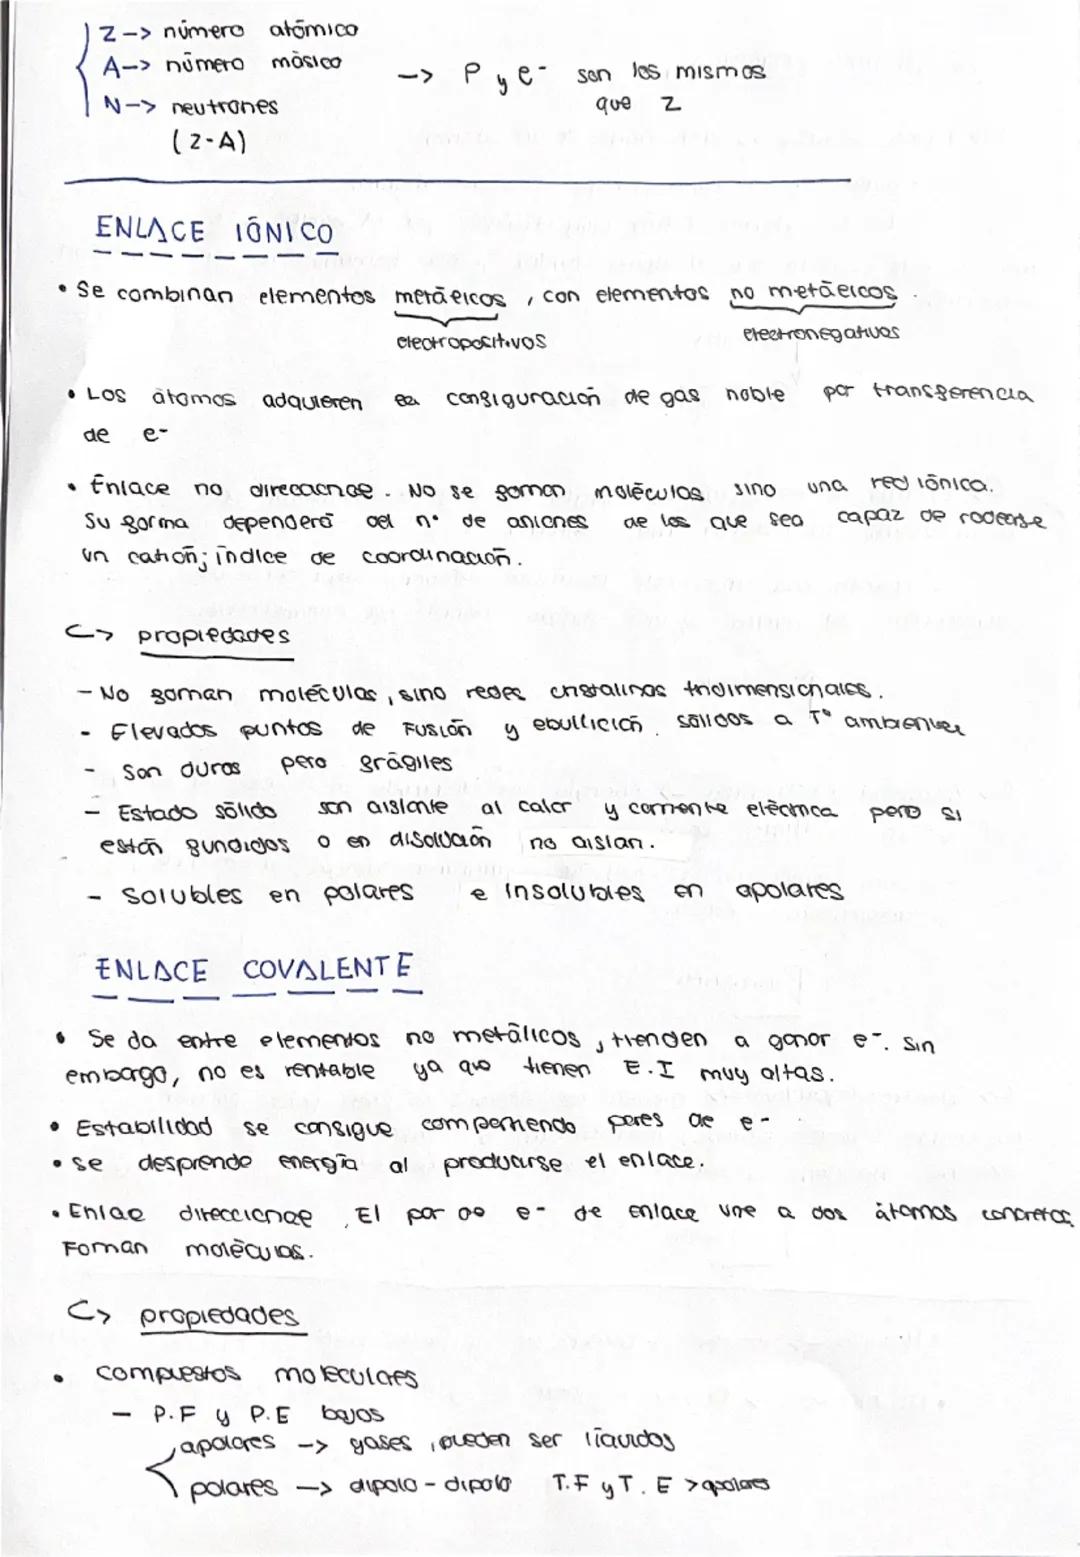 Z -> número atómico
A -> número másico
-> P y e- son los mismos
que Z
N -> neutrones
(Z-A)
ENLACE IÓNICO
• Se combinan elementos metálicos, con elementos no metálicos.
electropositivos electronegativos
• Los átomos adquieren la configuración de gas noble por transferencia
de e-
• Enlace no direccional. No se forman moléculas, sino una red iónica.
Su forma dependerá del nº de aniones de los que sea capaz de rodearse
un catión; índice de coordinación.
↪ propiedades
- No forman moléculas, sino redes cristalinas tridimensionales.
- Elevados puntos de fusión y ebullición. Sólidos a Tª ambiente
- Son duros pero frágiles
- Estado sólido son aislante al calor y corriente eléctrica pero si
están fundidos o en disolución no aislan.
- Solubles en polares e Insolubles en apolares
ENLACE COVALENTE
• Se da entre elementos no metálicos, tienden a ganar e-. Sin
embargo, no es rentable ya que tienen E.I muy altas.
• Estabilidad se consigue compartiendo pares de e-
• se desprende energía al producirse el enlace.
• Enlace direccional. El par de e- de enlace une a dos átomos concretos
Forman moléculas.
↪ propiedades
• compuestos moleculares
- P.F y P.E bajos
apolares -> gases, pueden ser líquidos
polares -> dipolo - dipolo T.F y T.E > apolares